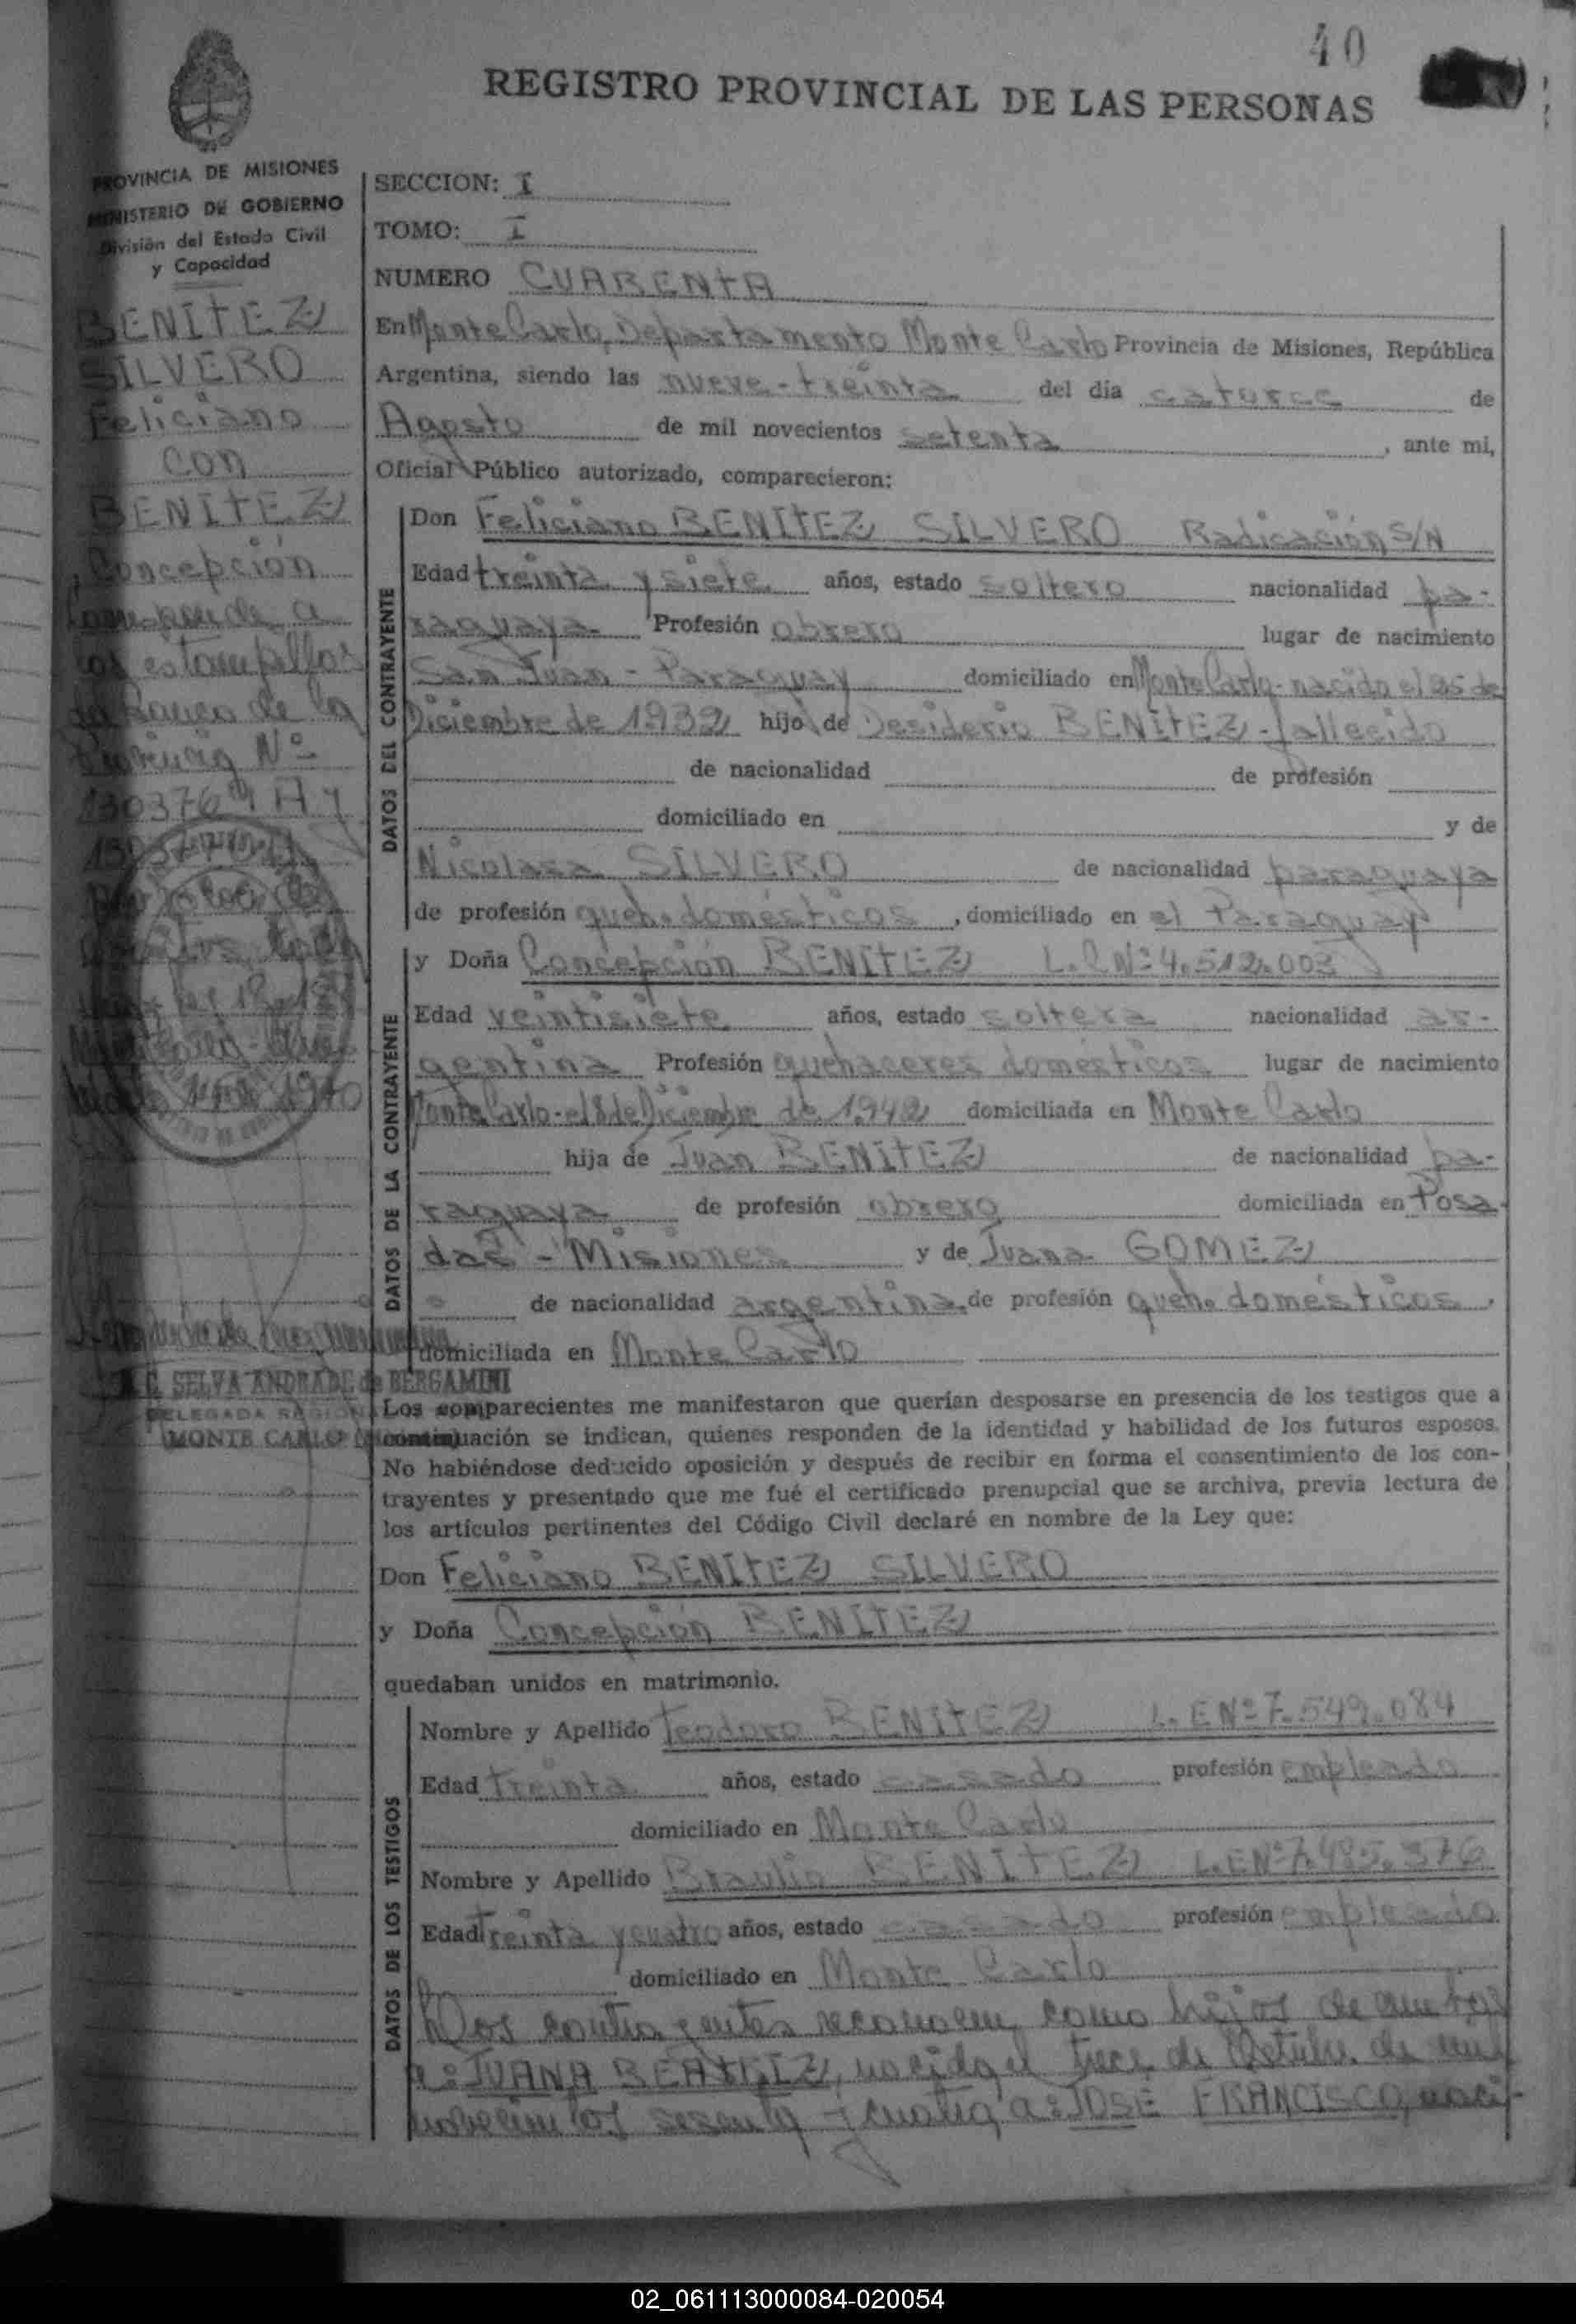 40
REGISTRO PROVINCIAL DE LAS PERSONAS
PROVINCIA DE MISIONES
MINISTERIO DE GOBIERNO
División del Estado Civil
y Capacidad
BENITEZ
SILVERO
Feliciano
con
BENITEZ
Concepción
SECCION: I
TOMO: I
NUMERO CUARENTA
En Monte Carlo, Departamento Monte Carlo Provincia de Misiones, República
Argentina, siendo las nueve-treinta del día catorce de
Agosto de mil novecientos setenta, ante mi,
Oficial Público autorizado, comparecieron:
DATOS DEL CONTRAYENTE
Don Feliciano BENITEZ SILVERO Radicación S/N
Edad treinta y siete años, estado soltero nacionalidad pa-
raguaya Profesión obrero lugar de nacimiento
San Juan - Paraguay domiciliado en Monte Carlo-nacido el 25 de
Diciembre de 1932 hijo de Desiderio BENITEZ-fallecido
de nacionalidad de profesión
domiciliado en y de
Nicolasa SILVERO de nacionalidad paraguaya
de profesión queh. domésticos, domiciliado en el Paraguay
DATOS DE LA CONTRAYENTE
y Doña Concepción BENITEZ L.C Nº 4.512.003
Edad veintisiete años, estado soltera nacionalidad ar-
gentina Profesión quehaceres domésticos lugar de nacimiento
Monte Carlo-el 8 de Diciembre de 1942 domiciliada en Monte Carlo
hija de Juan BENITEZ de nacionalidad pa-
raguaya de profesión obrero domiciliada en Posa-
das - Misiones y de Juana GOMEZ
de nacionalidad argentina, de profesión queh. domésticos,
domiciliada en Monte Carlo
SELVA ANDRADE de BERGAMINI
DELEGADA
MONTE CARLO
Los comparecientes me manifestaron que querían desposarse en presencia de los testigos que a
continuación se indican, quienes responden de la identidad y habilidad de los futuros esposos.
No habiéndose deducido oposición y después de recibir en forma el consentimiento de los con-
trayentes y presentado que me fué el certificado prenupcial que se archiva, previa lectura de
los artículos pertinentes del Código Civil declaré en nombre de la Ley que:
Don Feliciano BENITEZ SILVERO
y Doña Concepción BENITEZ
quedaban unidos en matrimonio.
DATOS DE LOS TESTIGOS
Nombre y Apellido Teodoro BENITEZ L. E Nº 7.549.084
Edad Treinta años, estado casado profesión empleado
domiciliado en Monte Carlo
Nombre y Apellido Braulio BENITEZ L.E Nº 7.485.376
Edad Treinta y cuatro años, estado casado profesión empleado
domiciliado en Monte Carlo
Los contrayentes reconocen como hijos de ambos
a: JUANA BEATRIZ, nacida el trece de Octubre de mil
novecientos sesenta y cuatro, a: JOSE FRANCISCO, naci-
02_061113000084-020054